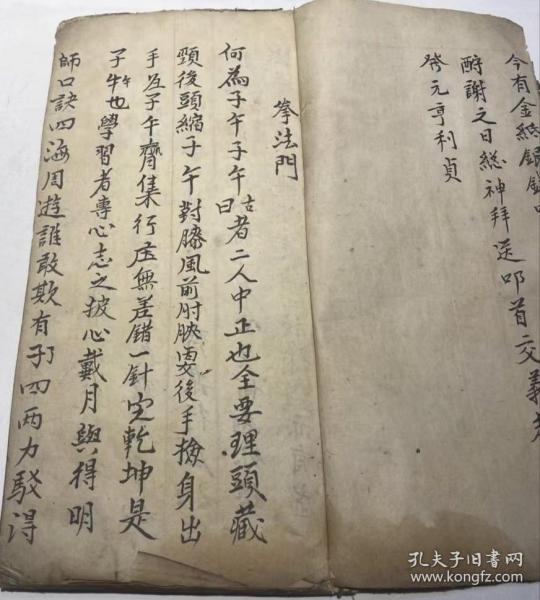 今有金錢銀錢
酧謝之日総神拜送叩首交義
咚元亨利貞
拳法門
何為子午子午古曰者二人中正也全要埋頭藏
頸後頭縮子午對膝風前肘脥要後手撿身出
手為子午齊集行庄無差錯一針定乾坤是
子牛也學習者專心志之披心戴月與得明
師口訣四海周遊誰敢欺有子四両力駁得
孔夫子旧书网
www.kongfz.com